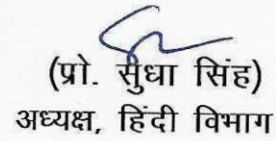 (प्रो. सुधा सिंह)
अध्यक्ष, हिंदी विभाग